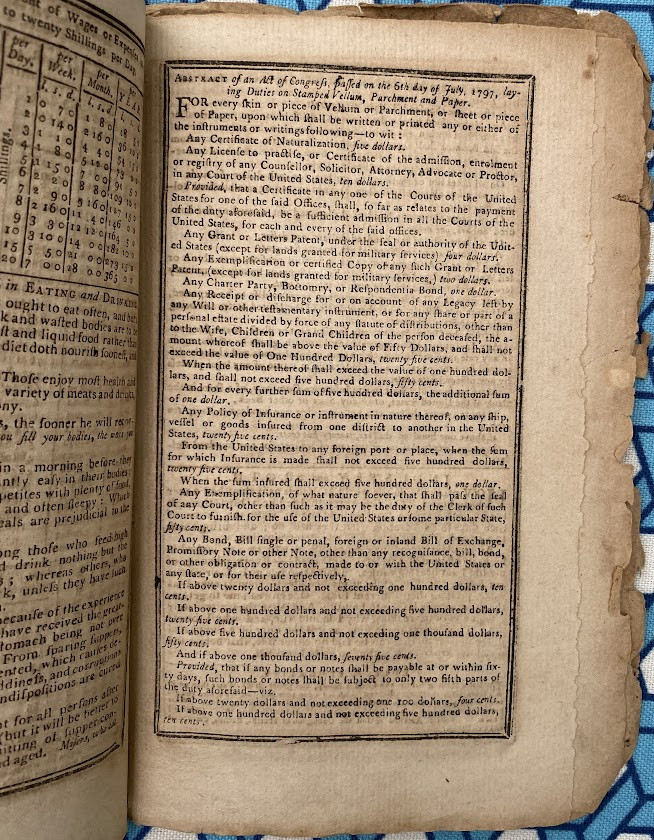 nt of Wages or Expenſes
to twenty Shillings per Day.
per Day.
per Week.
per Month.
per YEAR
l. s. d.
l. s. d.
Shillings.
in EATING and DRINKING
ought to eat often, and
k and waſted bodies are to
ſt and liquid food rather than
diet doth nouriſh ſooneſt, and
Thoſe enjoy moſt health and
variety of meats and drinks,
ony.
s, the ſooner he will
you fill your bodies, the more you
in a morning before they
antly eaſy in their bodies
petites with plenty of food,
and often ſleepy: Which
eals are prejudicial to the
ong thoſe who feed high
d drink nothing but the
s; whereas others, who
k, unleſs they have ſuch
ecauſe of the experience
have received the great-
ſtomach being not over
From ſparing ſuppers,
ented, which cauſes
ddineſs, and corruptions
ndiſpoſitions are cured
ot for all perſons after
(but it will be better to
mitting of ſupper
d aged.
ABSTRACT of an Act of Congreſs, paſſed on the 6th day of July, 1797, lay-
ing Duties on Stamped Vellum, Parchment and Paper.
FOR every ſkin or piece of Vellum or Parchment, or ſheet or piece
of Paper, upon which ſhall be written or printed any or either of
the inſtruments or writings following—to wit:
Any Certificate of Naturalization, five dollars.
Any Licenſe to practiſe, or Certificate of the admiſſion, enrolment
or regiſtry of any Counſellor, Solicitor, Attorney, Advocate or Proctor,
in any Court of the United States, ten dollars.
Provided, that a Certificate in any one of the Courts of the United
States for one of the ſaid Offices, ſhall, ſo far as relates to the payment
of the duty aforeſaid, be a ſufficient admiſſion in all the Courts of the
United States, for each and every of the ſaid offices.
Any Grant or Letters Patent, under the ſeal or authority of the Unit-
ed States (except for lands granted for military ſervices) four dollars.
Any Exemplification or certified Copy of any ſuch Grant or Letters
Patent, (except for lands granted for military ſervices,) two dollars.
Any Charter Party, Bottomry, or Reſpondentia Bond, one dollar.
Any Receipt or diſcharge for or on account of any Legacy left by
any Will or other teſtamentary inſtrument, or for any ſhare or part of a
perſonal eſtate divided by force of any ſtatute of diſtributions, other than
to the Wife, Children or Grand Children of the perſon deceaſed, the a-
mount whereof ſhall be above the value of Fifty Dollars, and ſhall not
exceed the value of One Hundred Dollars, twenty five cents.
When the amount thereof ſhall exceed the value of one hundred dol-
lars, and ſhall not exceed five hundred dollars, fifty cents.
And for every further ſum of five hundred dollars, the additional ſum
of one dollar.
Any Policy of Inſurance or inſtrument in nature thereof, on any ſhip,
veſſel or goods inſured from one diſtrict to another in the United
States, twenty five cents.
From the United States to any foreign port or place, when the ſum
for which Inſurance is made ſhall not exceed five hundred dollars,
twenty five cents.
When the ſum inſured ſhall exceed five hundred dollars, one dollar.
Any Exemplification, of what nature ſoever, that ſhall paſs the ſeal
of any Court, other than ſuch as it may be the duty of the Clerk of ſuch
Court to furniſh for the uſe of the United States or ſome particular State,
fifty cents.
Any Bond, Bill ſingle or penal, foreign or inland Bill of Exchange,
Promiſſory Note or other Note, other than any recogniſance, bill, bond,
or other obligation or contract, made to or with the United States or
any ſtate, or for their uſe reſpectively,
If above twenty dollars and not exceeding one hundred dollars, ten
cents.
If above one hundred dollars and not exceeding five hundred dollars,
twenty five cents.
If above five hundred dollars and not exceeding one thouſand dollars,
fifty cents.
And if above one thouſand dollars, ſeventy five cents.
Provided, that if any bonds or notes ſhall be payable at or within ſix-
ty days, ſuch bonds or notes ſhall be ſubject to only two fifth parts of
the duty aforeſaid—viz.
If above twenty dollars and not exceeding one 100 dollars, four cents.
If above one hundred dollars and not exceeding five hundred dollars,
ten cents.